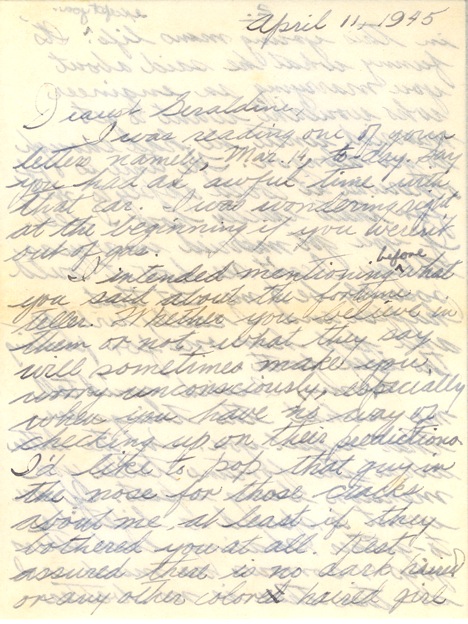 April 11, 1945
Dearest Geraldine,
I was reading one of your
letters namely, Mar. 14, to-day. Say
you had an awful time with
that car. I was wondering right
at the beginning if you weren't
out of gas.
I intended mentioning before what
you said about the fortune
teller. Whether you believe in
them or not what they say
will sometimes make you
worry unconsciously, especially
when you have no way of
checking up on their predictions
I'd like to pop that guy in
the nose for those cracks
about me at least if they
bothered you at all. Rest
assured there is no dark haired
or any other colored haired girl